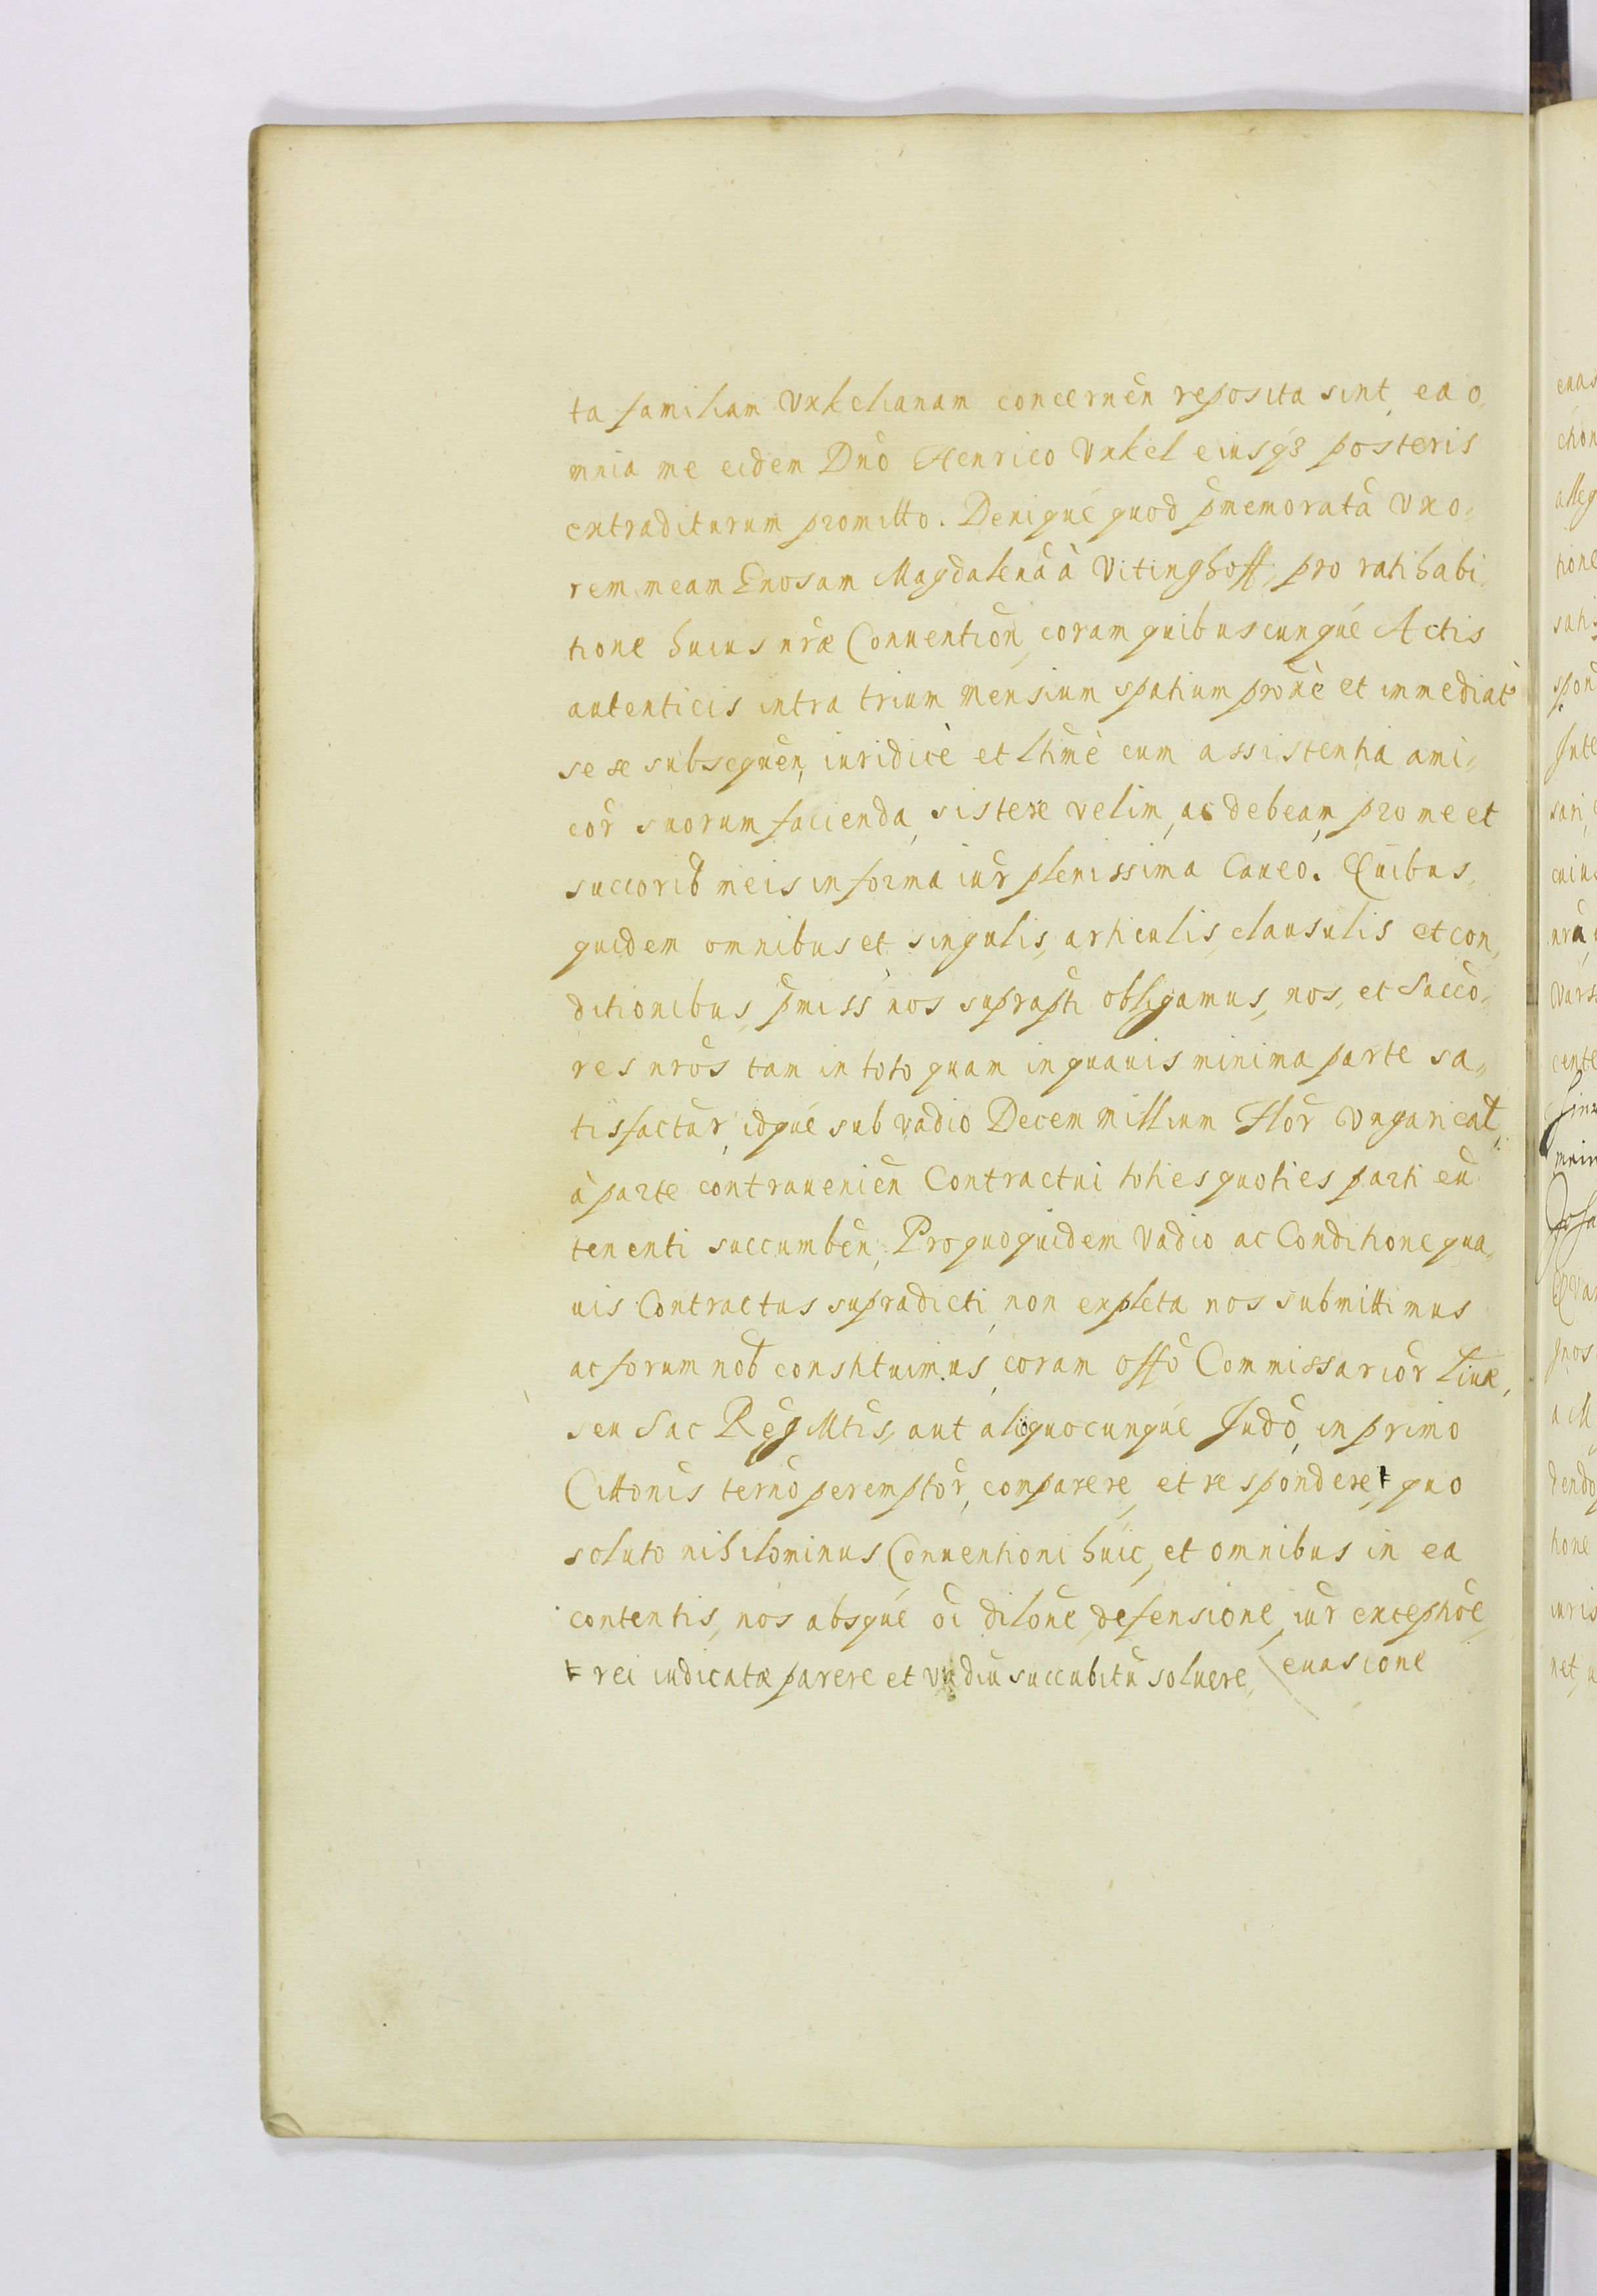 ta familiam Vxkelianam concernen̄ reposita sint, ea o,
mnia me eidem Dnō Henrico Vxkel eiusqꝫ posteris
extraditurum promitto. Deniqué quod p̄memoratā Vxo,
rem meam Gnosam Magdalenā à Vitinghoff, pro ratihabi,
tione huius nr̄æ Conuention̄, coram quibuscunqué Actis
autenticis intra trium mensium spatium prox̄è et immediatè
sese subsequen̄, iuridicè et lt̄imè cum assistentia ami,
cor̄ suorum facienda, sistere velim, ac debeam, pro me et
succorib̄ meis in forma iur̄ plenissima Caueo. Quibus,
quidem omnibus et singulis, articulis, clausulis et con,
ditionibus, p̄miss̄ nos suprap̄ti obligamus, nos, et Succō,
res nrōs tam in toto quam in quauis minima parte sa,
tisfactur̄, idqué sub vadio Decem millium Flor̄ Vngarical̄,
à parte contrauenien̄ Contractui toties quoties parti eū
tenenti succumben̄, Pro quo quidem Vadio ac Conditione qua,
uis Contractus supradicti, non expleta nos submittimus
ac forum nob̄ constituimus, coram offō Commissarior̄ Liuæ,
seu Sac Reḡ Mtis̄, aut alioquocunqué Judō, in primo
Cittonis̄ ternō peremptor̄, comparere, et respondere, ŧ quo
soluto nihilominus Conuentioni huic, et omnibus in ea
contentis, nos absqué oī dilōne, defensione, iur̄ exceptiōe,
ŧ rei iudicatæ parere et vadiū succubitū soluere, evasione